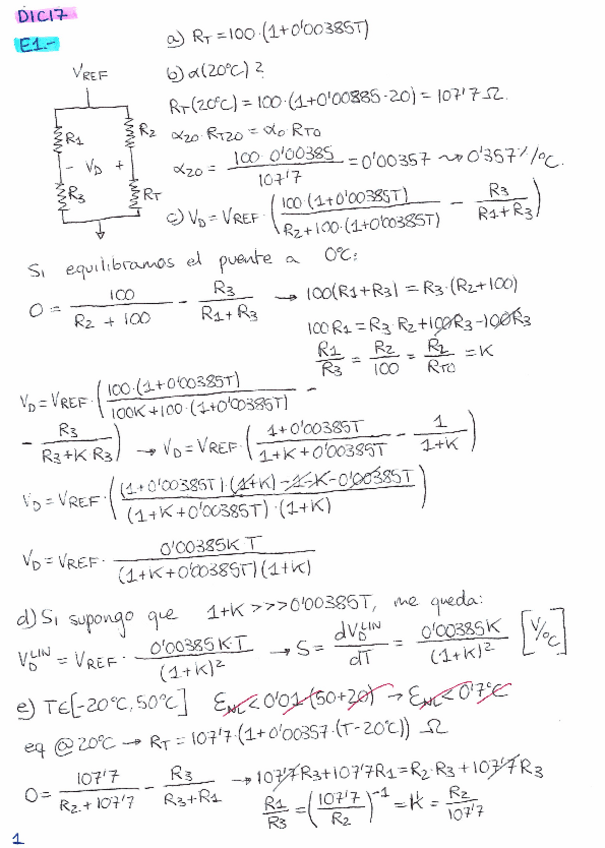 DIC17
E1.-
a) R_T = 100·(1+0'00385T)
b) α(20ºC)?
R_T(20ºC) = 100·(1+0'00385·20) = 107'7 Ω.
α20·R_T20 = α0·R_T0
α20 = (100·0'00385)/(107'7) = 0'00357 ⇝ 0'357%/ºC.
V_REF
R1
R2
- V_D +
R3
R_T
c) V_D = V_REF·( (100·(1+0'00385T))/(R2+100·(1+0'00385T)) - R3/(R1+R3) )
Si equilibramos el puente a 0ºC:
0 = 100/(R2 + 100) - R3/(R1+R3) → 100(R1+R3) = R3·(R2+100)
100R1 = R3·R2+100R3-100R3
R1/R3 = R2/100 = R2/R_T0 = K
V_D = V_REF·( (100·(1+0'00385T))/(100K+100·(1+0'00385T)) -
- R3/(R3+K R3) ) → V_D = V_REF·( (1+0'00385T)/(1+K+0'00385T) - 1/(1+K) )
V_D = V_REF·( ((1+0'00385T)·(1+K)-1-K-0'00385T)/((1+K+0'00385T)·(1+K)) )
V_D = V_REF· (0'00385K T)/((1+K+0'00385T)(1+K))
d) Si supongo que 1+K >>> 0'00385T, me queda:
V_D^LIN = V_REF· (0'00385KT)/(1+K)² → S = dV_D^LIN/dT = 0'00385K/(1+K)² [V/ºC]
e) T∈[-20ºC, 50ºC] ε_NL<0'01·(50+20) → ε_NL<0'7ºC
eq @20ºC → R_T = 107'7·(1+0'00357·(T-20ºC)) Ω
0 = 107'7/(R2+107'7) - R3/(R3+R1) → 107'7R3+107'7R1 = R2·R3+107'7R3
R1/R3 = (107'7/R2)^-1 = K = R2/107'7
1